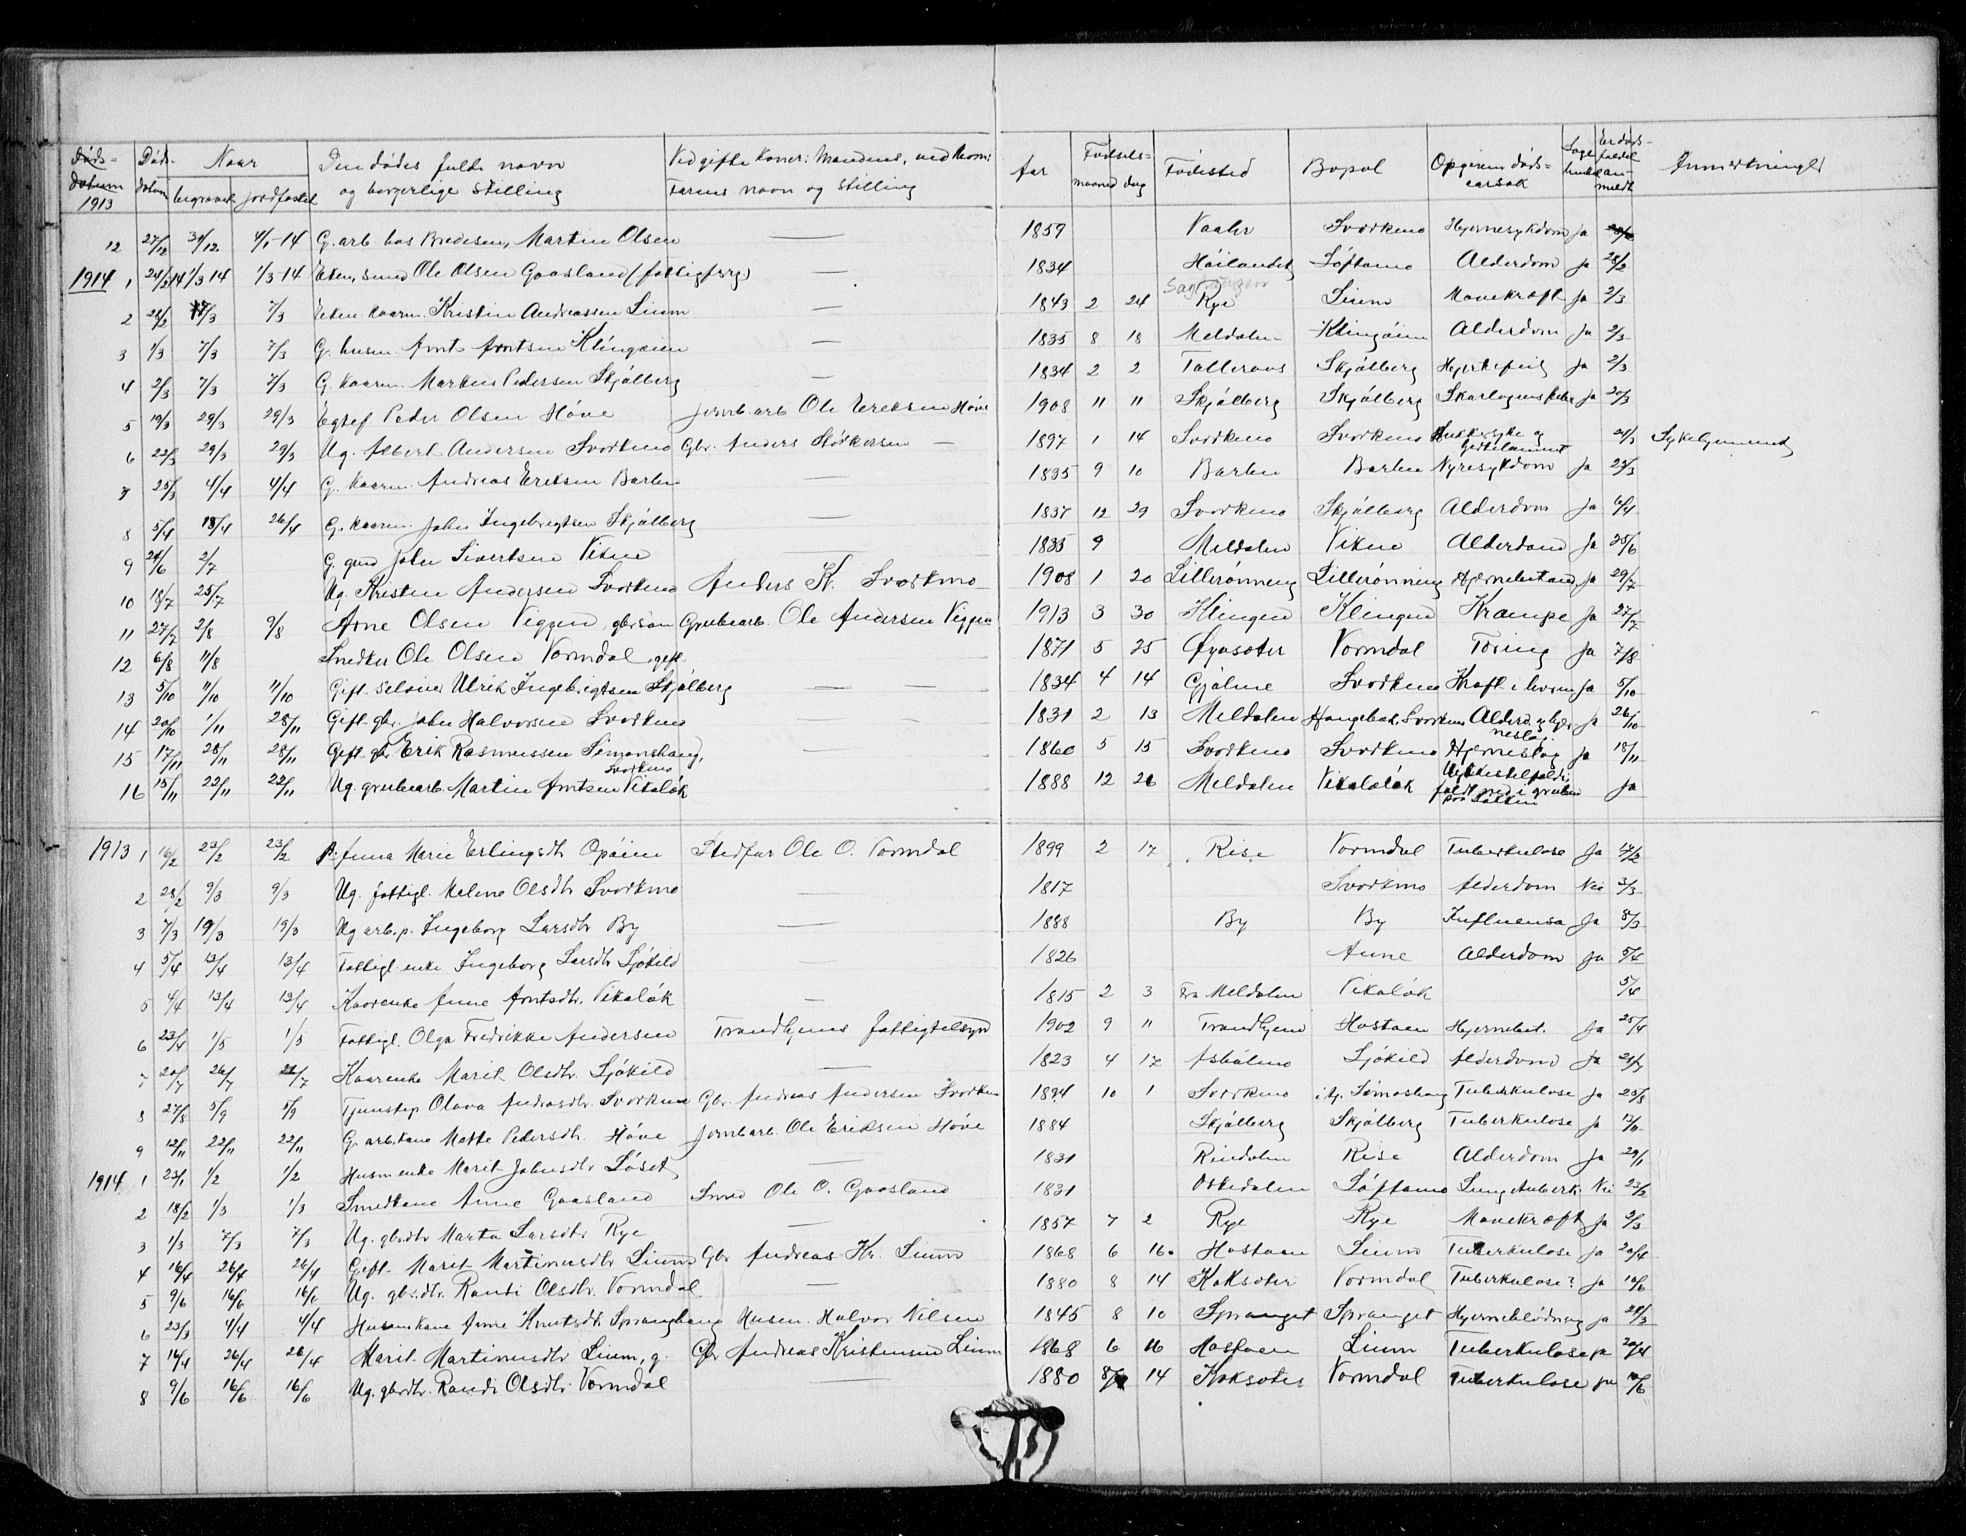 Døds-datum 1913 | Døds-datum | Naar begravet | jordfæstet | Den dødes fulde navn og borgerlige stilling | Ved gifte koner: Mandens, ved born: Farens navn og stilling | Aar | Fødsels- maaned | dag | Fødested | Bopæl | Opgiven døds-aarsak | Læge | Er døds-faldet an-meldt | Anmerkninger
12 | 27/12 | 31/12 | 4/1-14 | G. arb. hos Bredesen, Martin Olsen | — | 1859 | Svorkmo | Hjernesykdom | ja
1914 1 | 24/2 14 | 1/3 14 | 1/3-14 | Ekem. smed Ole Olsen Gaasland (fattigforg) | — | 1834 | Høilandet | Løftamo | Alderdom | ja | 28/2
2 | 28/2 | 7/3 | 7/3 | Kristen Andreassen Lium | — | 1843 | 2 | 24 | Rye | Lium | Mavekræft | ja | 2/3
3 | 1/3 | 7/3 | 7/3 | G. husm. Arnt Arntsen Klingøien | — | 1835 | 8 | 18 | Meldalen | Klingøien | Alderdom | ja | 2/3
4 | 2/3 | 7/3 | 7/3 | G. kaarm. Markus Pedersen Skjølberg | — | 1834 | 2 | 2 | Tålleraas | Skjølberg | Hjertefeil | ja | 2/3
5 | 19/3 | 29/3 | 29/3 | Egtef. Peder Olsen Høve | Jernb.arb. Ole Eriksen Høve | 1908 | 11 | 11 | Skjølberg | Skjølberg | Skarlagensfeber | ja | 20/3
6 | 22/3 | 29/3 | 29/3 | Ug. Albert Andersen Svorkmo | Gbr. Anders Størkersen — | 1897 | 1 | 14 | Svorkmo | Svorkmo | Sukkersyke og | 24/3
7 | 25/3 | 4/4 | 4/4 | G. kaarm. Andreas Eriksen Barlin | — | 1835 | 9 | 10 | Barlin | Barlin | Nyresykdom | ja | 25/3
8 | 5/4 | 13/4 | 26/4 | G. kaarm. John Ingebrigtsen Skjølberg | — | 1837 | 12 | 29 | Svorkmo | Skjølberg | Alderdom | ja | 6/4
9 | 24/6 | 2/7 | G. gmd John Sivertsen Viken | — | 1835 | 9 | Meldalen | Viken | Alderdom | ja | 25/6
10 | 18/7 | 25/7 | Ug. Kristen Andersen Svorkmo | Anders K. Svorkmo | 1908 | 1 | 20 | Lillerønning | Lillerønning | Hjernebetænd. | ja | 29/7
11 | 27/7 | 2/8 | 9/8 | Arne Olsen Viggen, gbrsøn | Grubearb. Ole Andersen Viggen | 1913 | 3 | 30 | Klingen | Klingen | Krampe | ja | 27/7
12 | 6/8 | 11/8 | Snedker Ole Olsen Vormdal, gift. | — | 1871 | 5 | 25 | Øyasæter | Vormdal | Tæring | ja | 7/8
13 | 5/10 | 11/10 | 11/10 | Gift seløier Ulrik Ingebrigtsen Skjølberg | — | 1834 | 4 | 14 | Gjølme | Svorkmo | Kræft i | ja | 5/10
14 | 20/10 | 1/11 | 28/11 | Gift gbr. John Halvorsen Svorkmo | — | 1831 | 2 | 13 | Meldalen | Hongebak, Svorkmo | Alderd. og hjerneslag | ja | 26/10
15 | 17/11 | 28/11 | 28/11 | Gift gbr Erik Rasmussen Simonshaug, Svorkmo | 1860 | 5 | 15 | Svorkmo | Svorkmo | Hjerneslag | ja | 18/11
16 | 15/11 | 22/11 | 22/11 | Ug. grubearb. Martin Arntsen Vikaløk | — | 1888 | 12 | 26 | Meldalen | Vikaløk | Ulykkestilfælde, faldt ned i gruben paa Løkken | ja
1913 1 | 16/2 | 23/2 | 23/2 | P. Anna Marie Erlingsdtr Opøien | Stedfar Ole O. Vormdal | 1899 | 2 | 17 | Rise | Vormdal | Tuberkulose | ja | 17/2
2 | 28/2 | 9/3 | 9/3 | Ug. fattigl. Malene Olsdtr Svorkmo | — | 1817 | Svorkmo | Alderdom | Nei | 3/3
3 | 7/3 | 19/3 | 19/3 | Ug arb.p. Ingeborg Larsdtr By | — | 1888 | By | By | Influensa | ja | 8/3
4 | 5/4 | 13/4 | 13/4 | Fattigl. enke Ingeborg Larsdtr Sjøkild | 1826 | Anne | Alderdom | ja | 5/4
5 | 4/4 | 13/4 | 13/4 | Kaarenke Anne Arntsdtr. Vikaløk | — | 1815 | 2 | 3 | Fra Meldalen | Vikaløk | 5/4
6 | 23/4 | 1/5 | 1/5 | Fattigl. Olga Fredrikke Andersen | Trondhjems fattigtilsyn | 1902 | 9 | 11 | Trondhjem | Hostoen | Hjernebet. | ja | 25/4
7 | 20/7 | 26/7 | 26/7 | Kaarenke Marit Olsdtr. Sjøkild | — | 1823 | 4 | 17 | Asbølmo | Sjøkild | Alderdom | ja | 21/7
8 | 27/8 | 5/9 | 5/9 | Tjenstep. Olava Andreasdtr. Svorkmo | Gbr. Andreas Andersen Svorkmo | 1894 | 10 | 1 | Svorkmo | Tuberkulose | ja
9 | 12/11 | 22/11 | 22/11 | G. arb.kone Mette Pedersdtr. Høve | Jernb.arb. Ole Eriksen Høve | 1884 | Skjølberg | Skjølberg | Tuberkulose | ja
1914 1 | 23/1 | 1/2 | 1/2 | Husm.enke Marit Johnsdtr Løset | — | 1831 | Rindalen | Rise | Alderdom | ja | 29/1
2 | 18/2 | 1/3 | 1/3 | Smedkone Anne Gaasland | Smed Ole O. Gaasland | 1831 | Orkedalen | Løftamo | Lungetuberk. | Nei | 23/2
3 | 1/3 | 7/3 | 7/3 | Ug. gbrdtr Marta Larsdtr Rye | — | 1857 | 7 | 2 | Rye | Rye | Mavekræft | ja | 2/3
4 | 16/4 | 26/4 | 26/4 | Gift. Marit Martinusdtr Lium | Gbr Andreas Kr. Lium | 1868 | 6 | 16 | Hostoen | Lium | Tuberkulose | ja | 20/4
5 | 9/6 | 16/6 | 16/6 | Ug. gbr.dtr. Randi Olsdtr. Vormdal | — | 1880 | 8 | 14 | Koksæter | Vormdal | Tuberkulose? | ja | 10/6
6 | 23/3 | 4/4 | 4/4 | Husm.kone Anne Knutsdtr Spranghaug | Husm. Halvor Nilsen | 1845 | 8 | 10 | Spranget | Spranget | Hjerneblødning | ja | 28/3
7 | 16/4 | 26/4 | 26/4 | Marit Martinusdtr Lium, g. | Gbr Andreas Kristensen Lium | 1868 | 6 | 16 | Hostoen | Lium | Tuberkulose | ja | 20/4
8 | 9/6 | 16/6 | 16/6 | Ug. gbrdtr. Randi Olsdtr Vormdal | — | 1880 | 8 | 14 | Koksæter | Vormdal | Tuberkulose | ja | 10/6